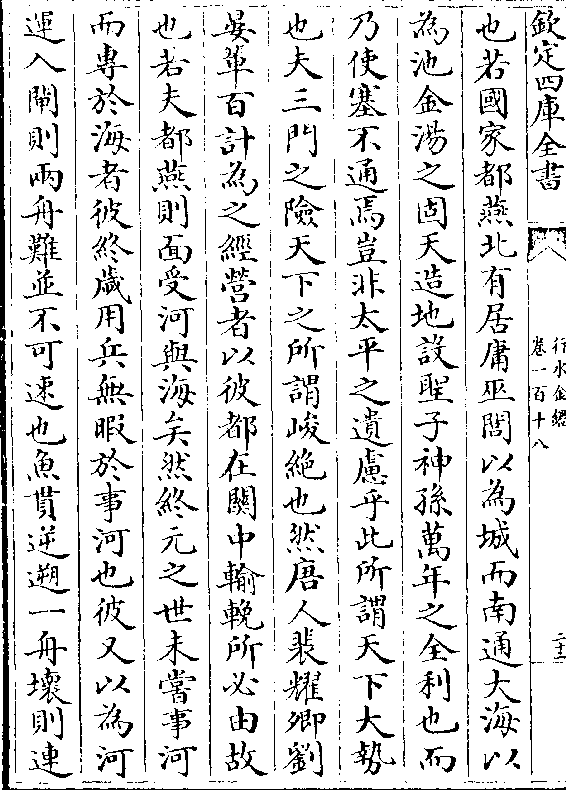 欽定四庫全書
行水金鑑
卷一百十八
二十二
也若國家都燕北有居庸巫閭以為城而南通大海以
為池金湯之固天造地設聖子神孫萬年之全利也而
乃使塞不通焉豈非太平之遺慮乎此所謂天下大勢
也夫三門之險天下之所謂峻絶也然唐人裴耀卿劉
晏軰百計為之經營者以彼都在關中輸輓所必由故
也若夫都燕則面受河與海矣然終元之世未嘗事河
而專於海者彼終歲用兵無暇於事河也彼又以為河
運入閘則兩舟難並不可速也魚貫逆遡一舟壞則連